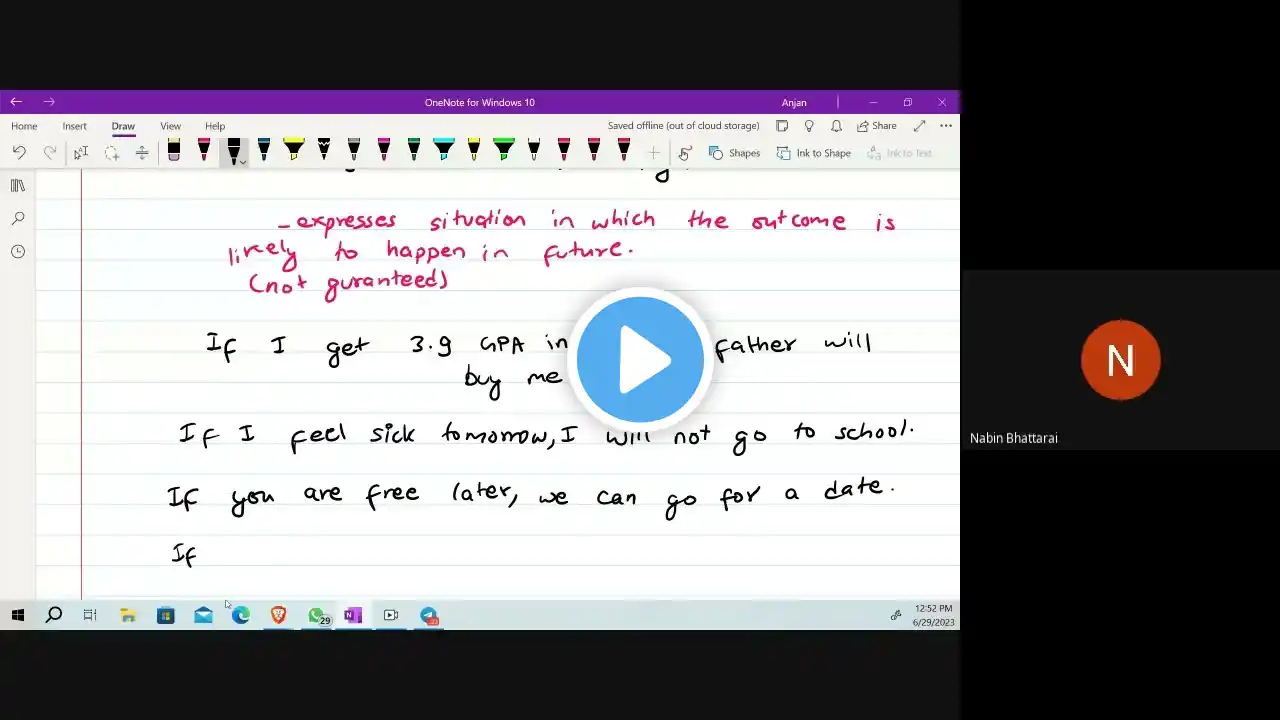 OneNote for Windows 10
Anjan
Home Insert Draw View Help
Saved offline (out of cloud storage)
Share
Shapes
Ink to Shape
Ink to Text
- expresses situation in which the outcome is
likely to happen in future.
(not guranteed)
If I get 3.9 GPA in father will
buy me
If I feel sick tomorrow, I will not go to school.
If you are free later, we can go for a date.
If
N
Nabin Bhattarai
29
12:52 PM
6/29/2023